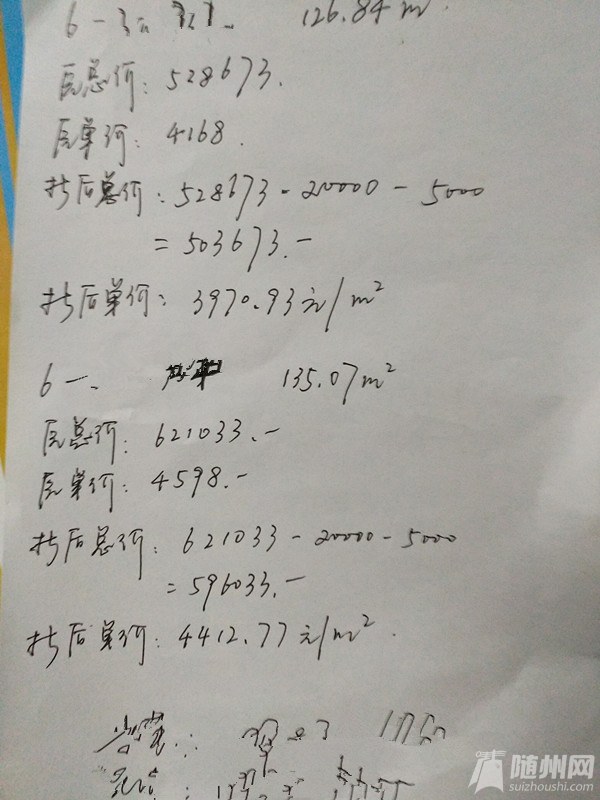 6-3 126.84m²
原总价：528673.
原单价：4168.
折后总价：528673-20000-5000
=503673.-
折后单价：3970.93元/m²
6-、 135.07m²
原总价：621033.-
原单价：4598.-
折后总价：621033-20000-5000
=596033.-
折后单价：4412.77元/m².
随州网
suizhoushi.com